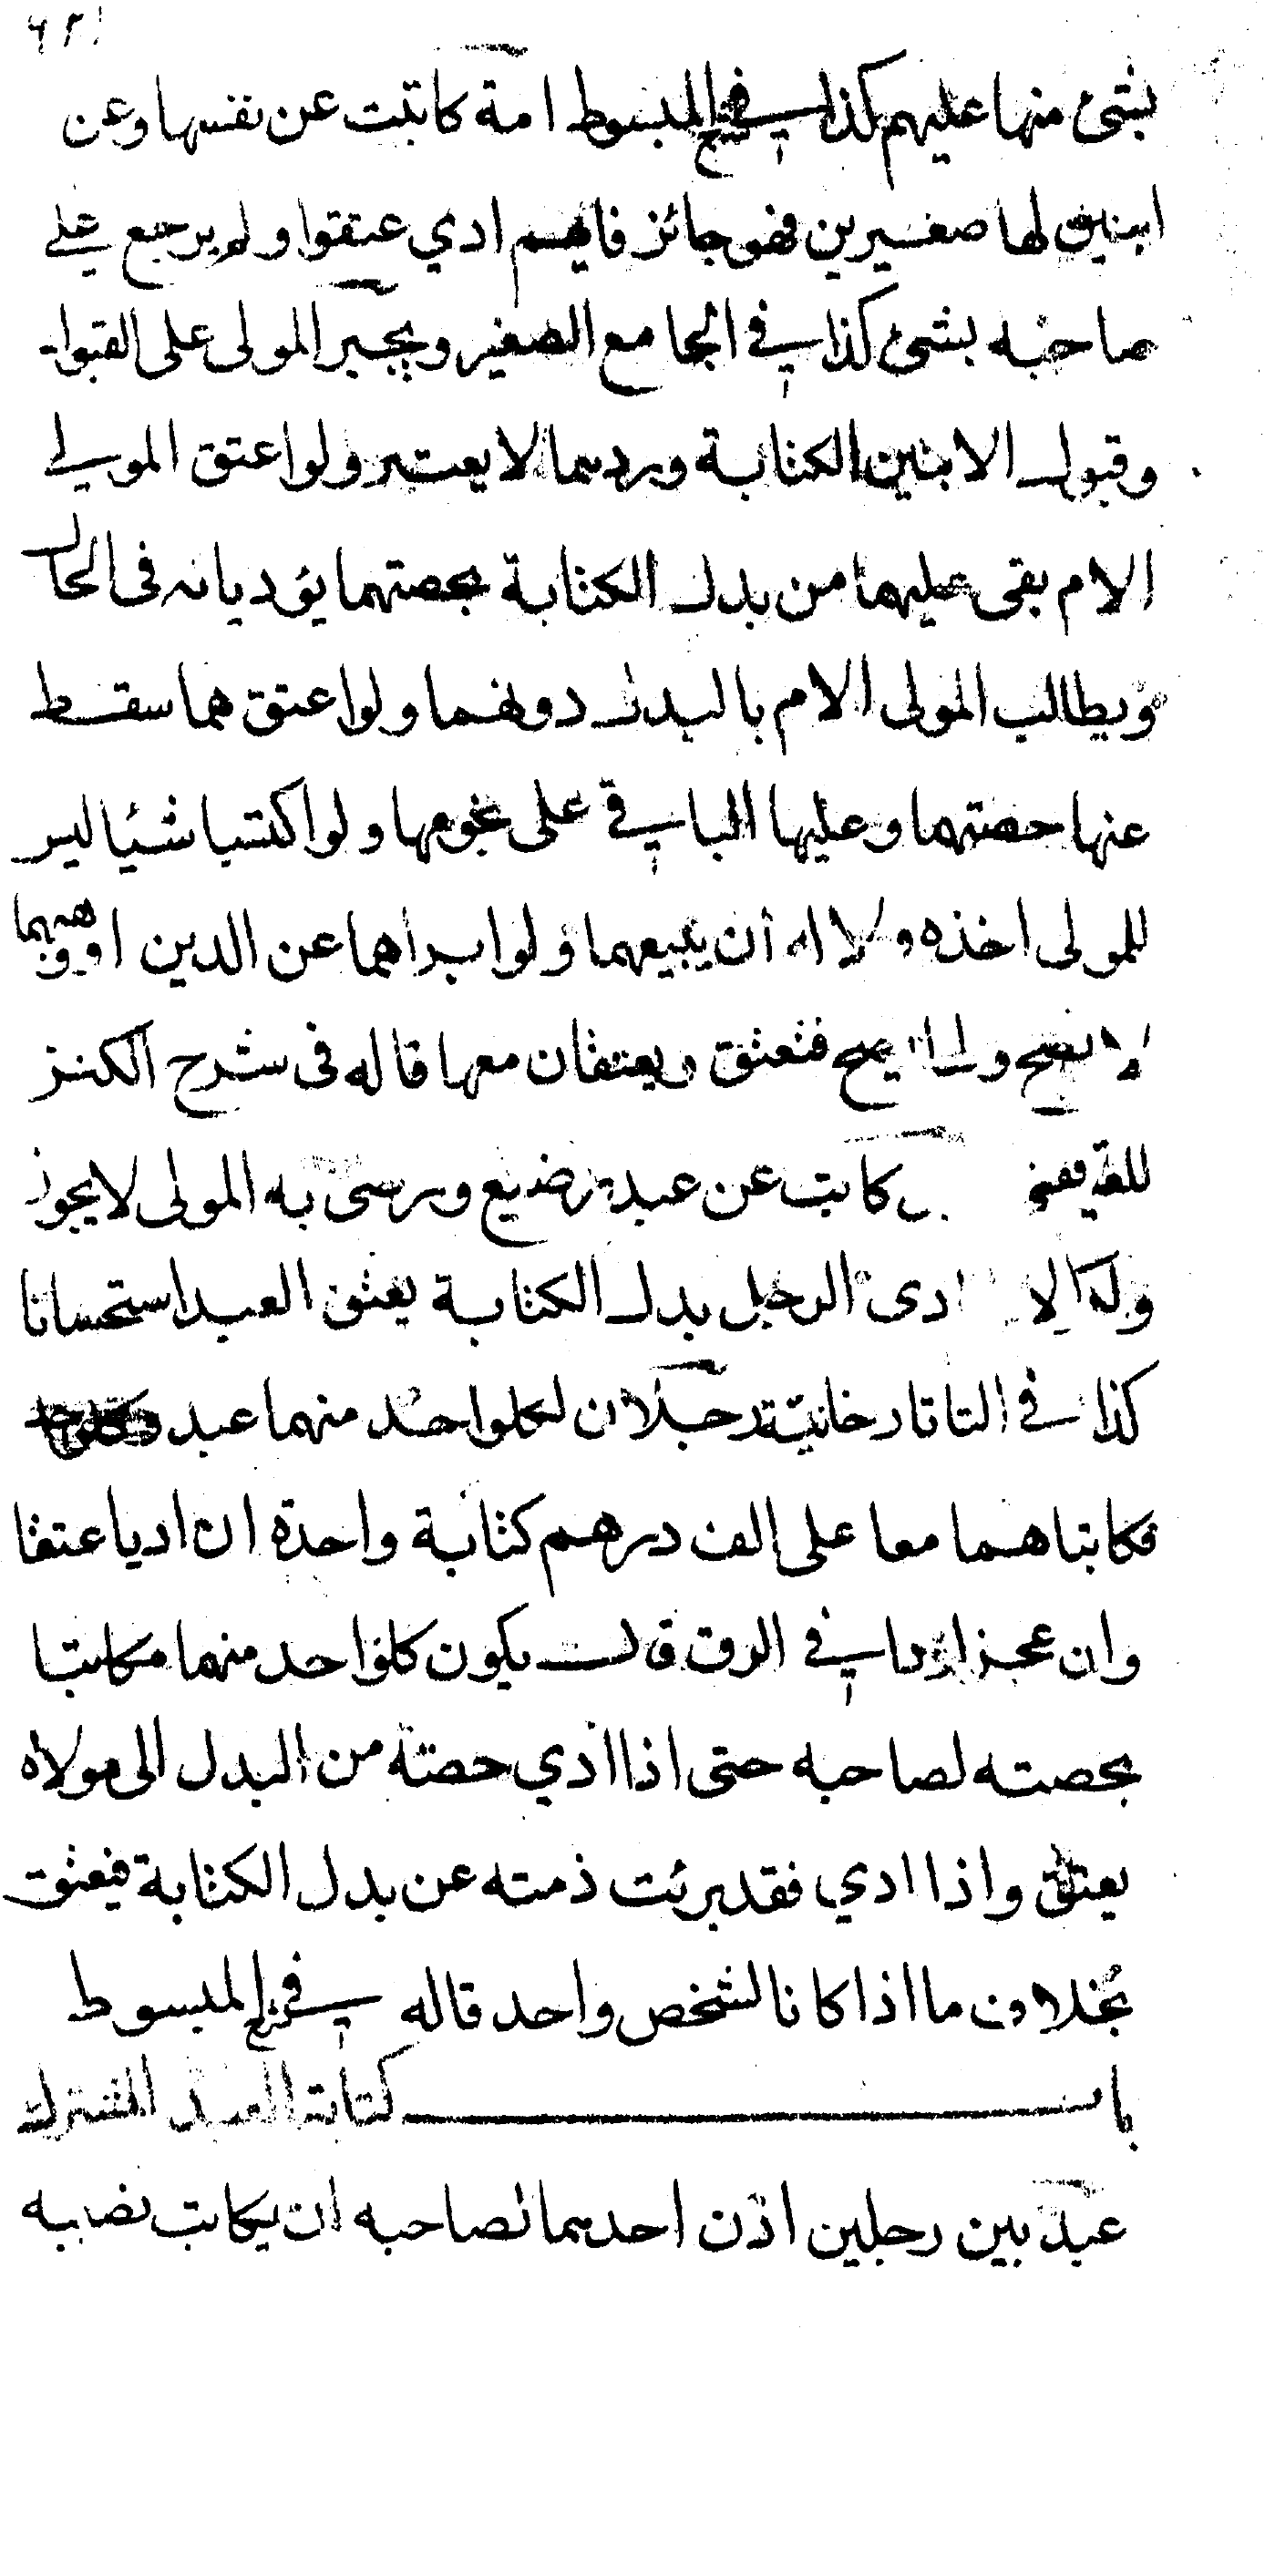 بشئ منها عليهم كذا في شرح المبسوط امة كاتبت عن نفسها وعن
ابنين لها صغيرين فهو جائز فايهم ادي عتقوا ولم يرجع علي
صاحبه بشئ كذا في الجامع الصغير ويجبر المولى على القبول
وقبول الابنين الكتابة وردهما لا يعتبر ولو اعتق المولي
الام بقى عليهما من بدل الكتابة بحصتهما يؤديانه في الحال
ويطالب المولى الام بالبدل دونهما ولو اعتق هما سقط
عنها حصتهما وعليها الباقي على نجومها ولو اكتسبا شيئا ليس
للمولى اخذه ولا له ان يبيعهما ولو ابراهما عن الدين او وهبهما
لا يصح ولها يصح فتعتق ويعتقان معها قاله في شرح الكنز
كاتب عن عبد رضيع ورضى به المولى لا يجوز
ادى الرجل بدل الكتابة يعتق العبد استحسانا
كذا في التاتارخانية رجلان لكلواحد منهما عبد
فكاتباهما معا على الف درهم كتابة واحدة ان اديا عتقا
وان عجزا ردا في الرق قال يكون كلواحد منهما مكاتبا
بحصته لصاحبه حتى اذا ادي حصته من البدل الى مولاه
يعتق واذا ادي فقد برئت ذمته عن بدل الكتابة فيعتق
بخلاف ما اذا كانا لشخص واحد قاله في شرح المبسوط
باب كتابة العبد المشترك
عبد بين رجلين اذن احدهما لصاحبه ان يكاتب نصيبه